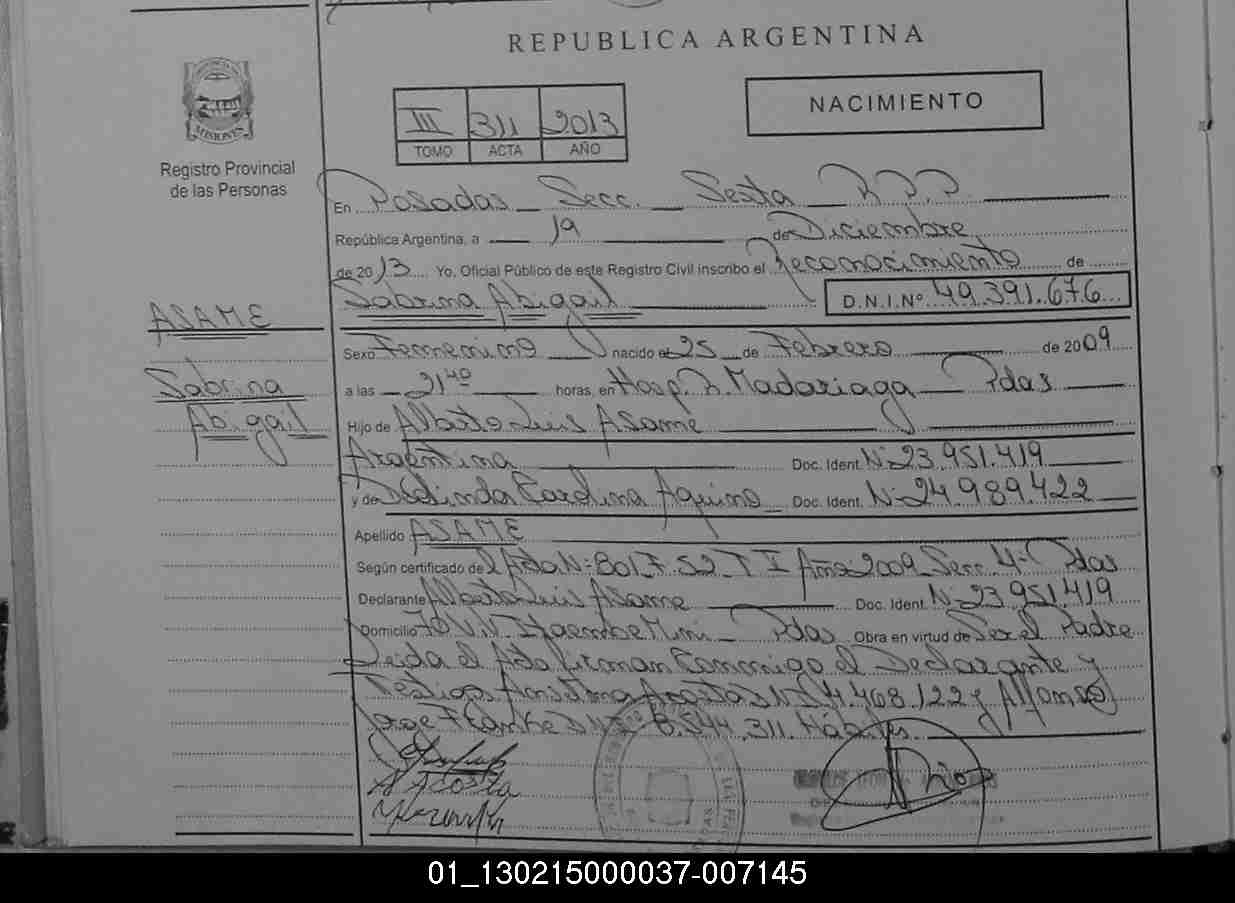 REPUBLICA ARGENTINA
MISIONES
Registro Provincial
de las Personas
III 311 2013
TOMO ACTA AÑO
NACIMIENTO
En Posadas Secc. Sexta R.P.P.
República Argentina, a 19 de Diciembre
de 2013 Yo, Oficial Público de este Registro Civil inscribo el Reconocimiento de
Sabrina Abigail D.N.I.Nº 49.391.676
ASAME
Sabrina
Abigail
Sexo Femenino nacido el 25 de Febrero de 2009
a las 21 40 horas, en Hosp. R. Madariaga Pdas
Hijo de Alberto Luis Asame
Argentina Doc. Ident. Nº 23.951.419
y de Carolina Aquino Doc. Ident. Nº 24.989.422
Apellido ASAME
Según certificado de Acta Nº 801 F 52 T I Año 2009 Secc. 4º Pdas
Declarante Alberto Luis Asame Doc. Ident. Nº 23.951.419
Domicilio Itaembe Mini Pdas Obra en virtud de Ser el Padre
Leida el Acta firman Conmigo el Declarante y
Testigos Acosta DNI 468.122 y
Jorge DNI 8.544.311 Hábiles.
A Acosta
01_130215000037-007145